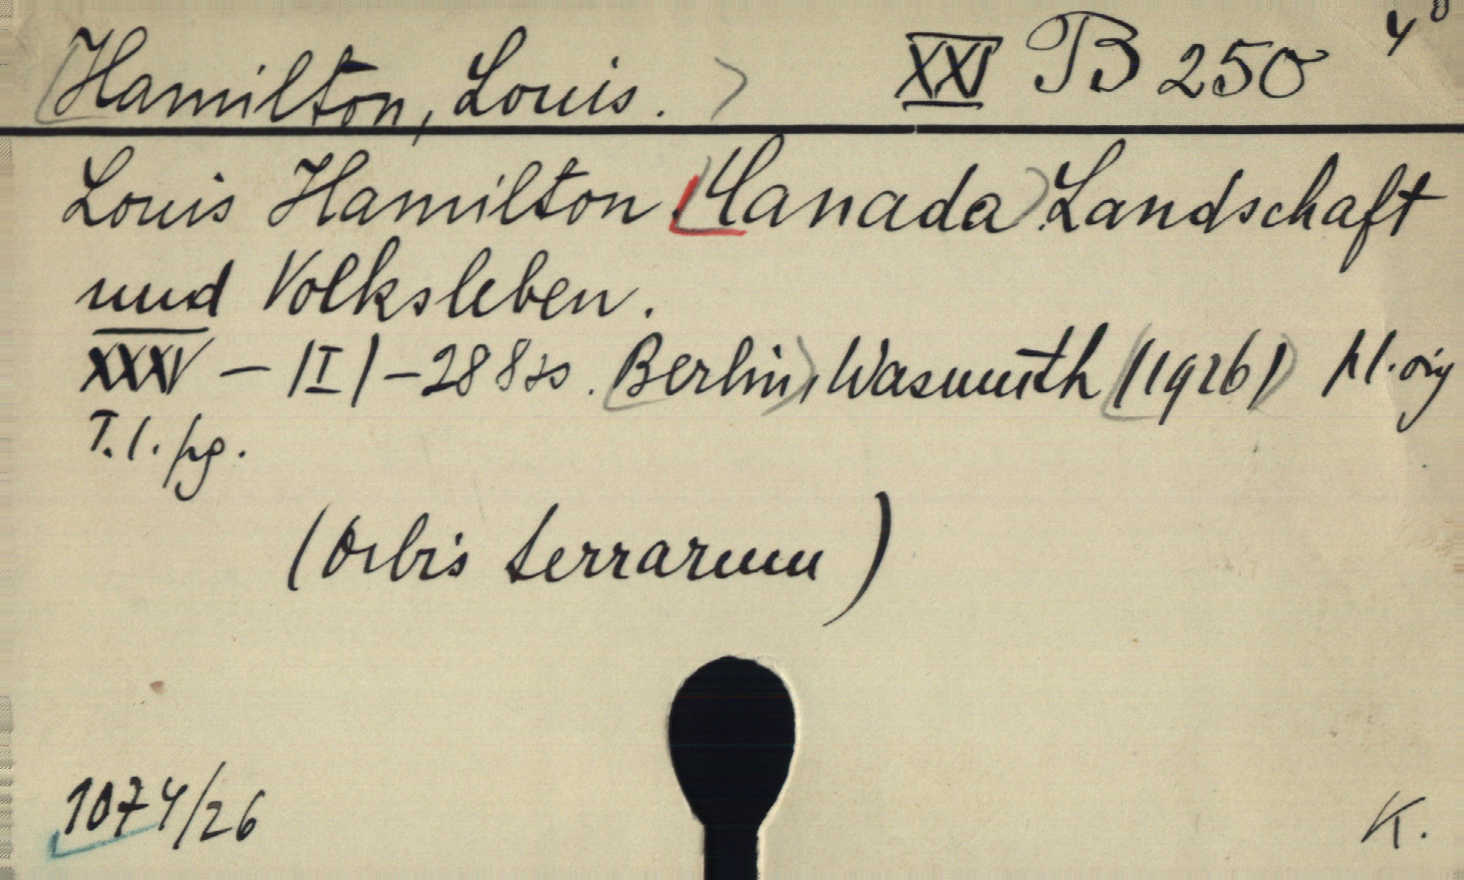 Hamilton, Louis. XXI B 250 4°
Louis Hamilton Kanada Landschaft
und Volksleben.
XXXV – |I| – 288 ss. Berlin, Wasmuth |1926| pl. orig
T. l. pg.
(Orbis terrarum)
1074/26
K.